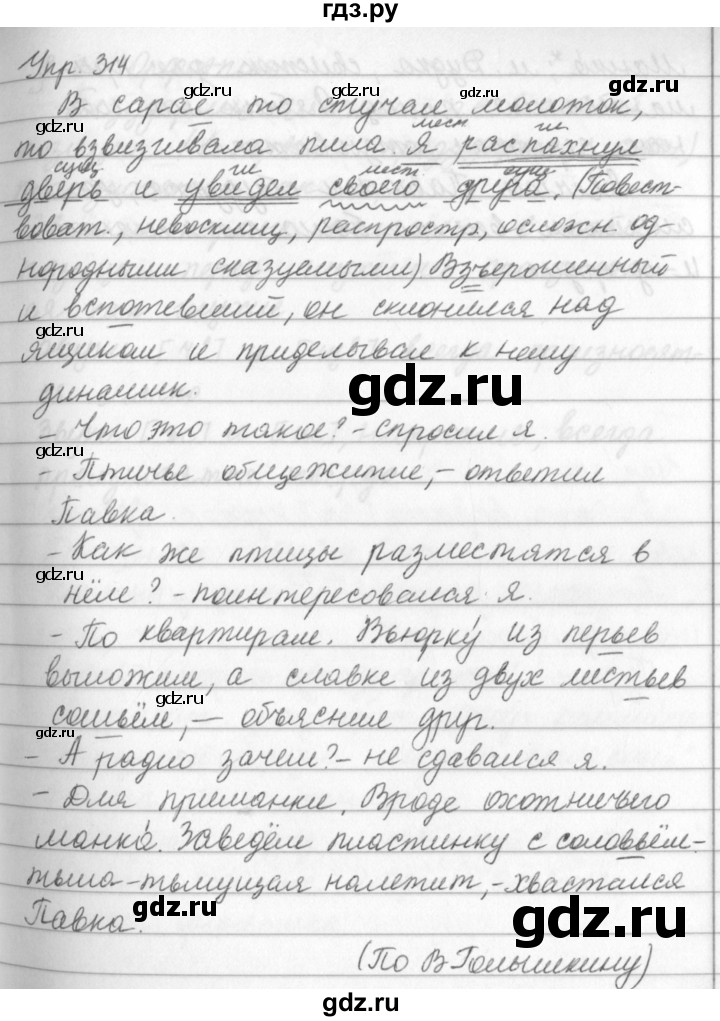 гдз.ру
Упр 314
gdz.ru
В сарае то стучал молоток,
мест гл
то взвизгивала пила Я распахнул
сущ гл мест сущ
дверь и увидел своего друга. (Повест-
gdz.ru
воват., невосклиц, распростр, осложн од-
нородными сказуемыми) Взъерошенный
gdz.ru
и вспотевший, он склонился над
gdz.ru
ящиком и приделывал к нему
динамик.
gdz.ru
gdz.ru
- Что это такое? - спросил я.
- Птичье общежитие, - ответил
gdz.ru
Павка.
- Как же птицы разместятся в
gdz.ru
нём? - поинтересовался я.
gdz.ru
- По квартирам. Вьюрку́ из перьев
выложим, а славке из двух листьев
gdz.ru
сошьём, - объяснил друг.
gdz.ru
- А радио зачем? - не сдавался я.
- Для приманки. Вроде охотничьего
gdz.ru
манка́. Заведём пластинку с соловьём -
тьма-тьмущая налетит, - хвастался
gdz.ru
Павка.
gdz.ru
(По В Голышкину)
gdz.ru
gdz.ru